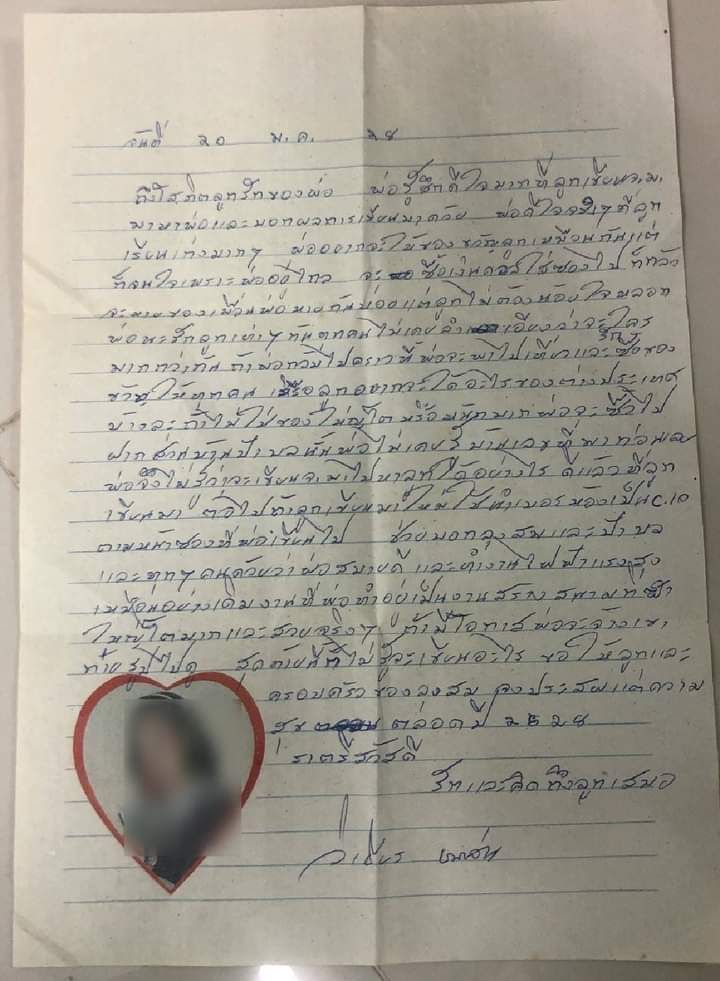 วันที่ ๒๐ ม.ค. ๒๘
ถึงโสภิตลูกรักของพ่อ พ่อรู้สึกดีใจมากที่ลูกเขียนจ.ม.
มาหาพ่อและบอกผลการเรียนมาด้วย พ่อดีใจจริงๆที่ลูก
เรียนเก่งมากๆ พ่ออยากจะให้ของขวัญลูกเหมือนกันแต่
ก็จนใจเพราะพ่ออยู่ไกล จะ ซื้อ ใส่ซองไป ก็กลัว
จะหายของเพื่อนพ่อหายกันบ่อยแต่ลูกไม่ต้องน้อยใจหลอก
พ่อนะรักลูกเท่าๆกันทุกคนไม่เคยลำเอียงว่าจะรักใคร
มากกว่ากัน ถ้าพ่อกลับไปคราวนี้พ่อจะพาไปเที่ยวและซื้อของ
ขวัญให้ทุกคน หรือลูกอยากจะได้อะไรของต่างประเทศ
บ้างละ ถ้าไม่ใช่ของใหญ่โตหรือหนักมากพ่อจะซื้อไป
ฝากส่วนบ้านป้าบลนั้นพ่อไม่เคยรู้บ้านเลขที่มาก่อนเลย
พ่อจึงไม่รู้ว่าจะเขียนจ.ม.ไปหาลูกได้อย่างไร ดีแล้วที่ลูก
เขียนมา ต่อไปถ้าลูกเขียนมาใหม่ใส่นำเบอรห้องเป็นC.10
ตามหน้าซองที่พ่อเขียนไป ช่วยบอกลุงสมและป้าบล
และทุกๆคนด้วยว่าพ่อสบายดี และทำงานไฟฟ้าแรงสูง
เหมือนอย่างเดิมงานที่พ่อทำอยู่เป็นงานสร้างสนามกีฬา
ใหญ่โตมากและสวยจริงๆ ถ้ามีโอกาสพ่อจะจ้างเขา
ถ่ายรูปไปดู สุดท้ายนี้ก็ไม่รู้จะเขียนอะไร ขอให้ลูกและ
ครอบครัวของลุงสม จงประสพแต่ความ
สุข ตลอดปี ๒๕๒๘
ราตรีสวัสดิ์
รักและคิดถึงลูกเสมอ